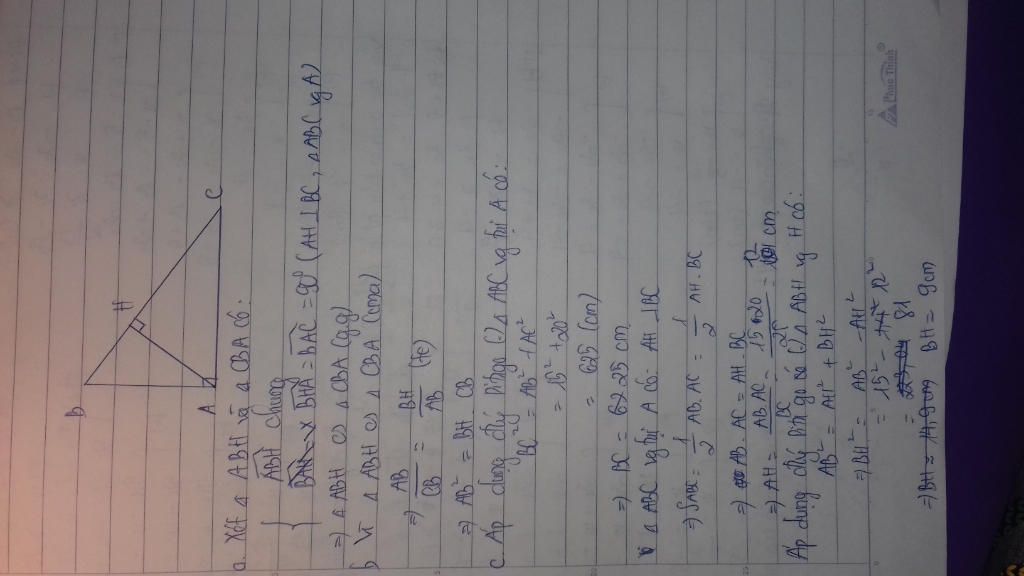 B
H
A
C
a. Xét Δ ABH và Δ CBA có:
ABH chung
BHA = BAC = 90° (AH ⊥ BC, Δ ABC vg A)
=) Δ ABH ∽ Δ CBA (g.g)
b Vì Δ ABH ∽ Δ CBA (cma)
=) AB/CB = BH/AB (tc)
=) AB² = BH. CB
c. Áp dụng đlý Pitago Δ ABC vg tại A có:
BC² = AB² + AC²
= 15² + 20²
= 625 (cm)
=) BC = 25 cm
Δ ABC vg tại A có AH ⊥ BC
=) SABC = 1/2 AB. AC = 1/2 AH. BC
=) AB. AC = AH. BC
=) AH = AB.AC/BC = 15.20/25 = 12 cm
Áp dụng đlý Pitago Δ ABH vg H có:
AB² = AH² + BH²
=) BH² = AB² - AH²
= 15² - 12²
= 81
=) BH = 9cm
Phúc Thịnh®